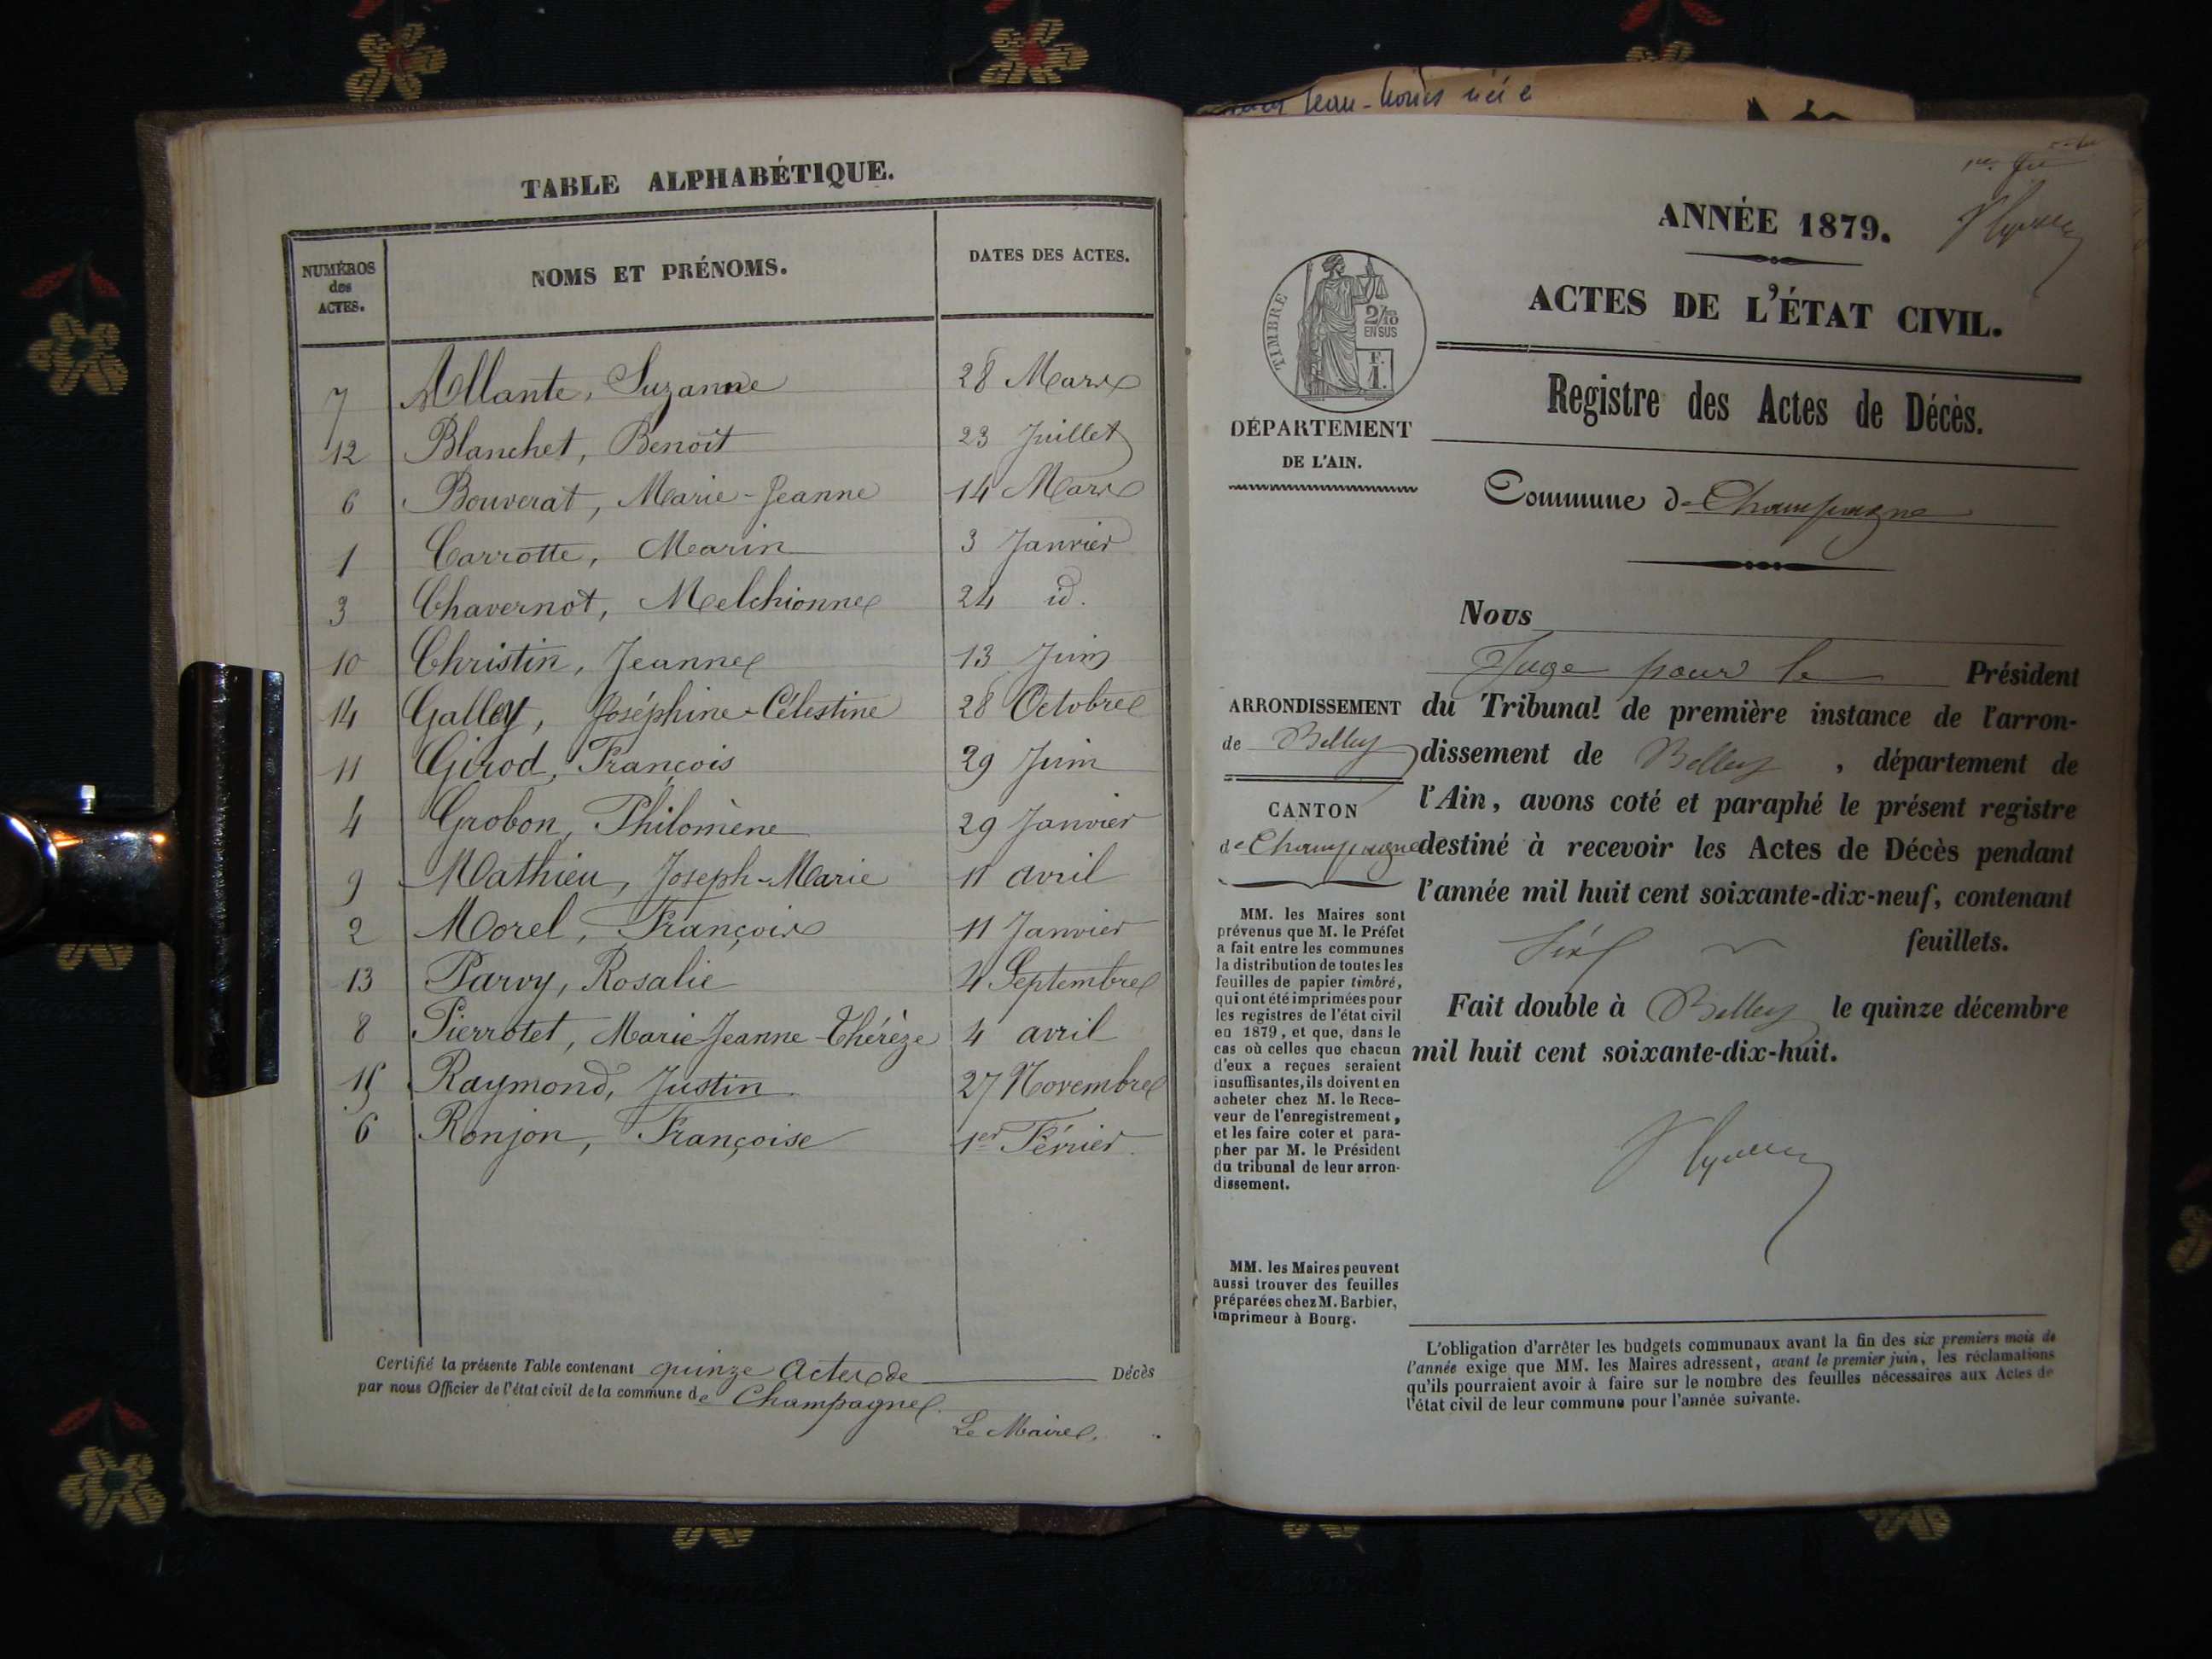 TABLE ALPHABÉTIQUE.
NUMÉROS des ACTES. NOMS ET PRÉNOMS. DATES DES ACTES.
7 Allante, Suzanne 28 Mars
12 Blanchet, Benoît 23 Juillet
6 Bouverat, Marie-Jeanne 14 Mars
1 Carrotte, Marin 3 Janvier
3 Chavernot, Melchionne 24 id.
10 Christin, Jeanne 13 Juin
14 Galley, Joséphine-Célestine 28 Octobre
11 Girod, François 29 Juin
4 Grobon, Philomène 29 Janvier
9 Mathieu, Joseph-Marie 11 avril
2 Morel, François 11 Janvier
13 Parvy, Rosalie 4 Septembre
8 Pierrotet, Marie Jeanne-Thérèze 4 avril
15 Raymond, Justin 27 Novembre
6 Ronjon, Françoise 1er Février
Certifié la présente Table contenant quinze Actes de Décès
par nous Officier de l'état civil de la commune de Champagne.
Le Maire.
Jean-Louis née
ANNÉE 1879.
ACTES DE L'ÉTAT CIVIL.
TIMBRE
2/10 EN SUS
F. 1.
Registre des Actes de Décès.
DÉPARTEMENT
DE L'AIN.
Commune de Champagne
Nous
Juge pour le Président
du Tribunal de première instance de l'arron-
dissement de Belley, département de
l'Ain, avons coté et paraphé le présent registre
destiné à recevoir les Actes de Décès pendant
l'année mil huit cent soixante-dix-neuf, contenant
feuillets.
Fait double à Belley le quinze décembre
mil huit cent soixante-dix-huit.
ARRONDISSEMENT
de Belley
CANTON
de Champagne
MM. les Maires sont
prévenus que M. le Préfet
a fait entre les communes
la distribution de toutes les
feuilles de papier timbré,
qui ont été imprimées pour
les registres de l'état civil
en 1879, et que, dans le
cas où celles que chacun
d'eux a reçues seraient
insuffisantes, ils doivent en
acheter chez M. le Rece-
veur de l'enregistrement,
et les faire coter et para-
pher par M. le Président
du tribunal de leur arron-
dissement.
MM. les Maires peuvent
aussi trouver des feuilles
préparées chez M. Barbier,
imprimeur à Bourg.
L'obligation d'arrêter les budgets communaux avant la fin des six premiers mois de
l'année exige que MM. les Maires adressent, avant le premier juin, les réclamations
qu'ils pourraient avoir à faire sur le nombre des feuilles nécessaires aux Actes de
l'état civil de leur commune pour l'année suivante.